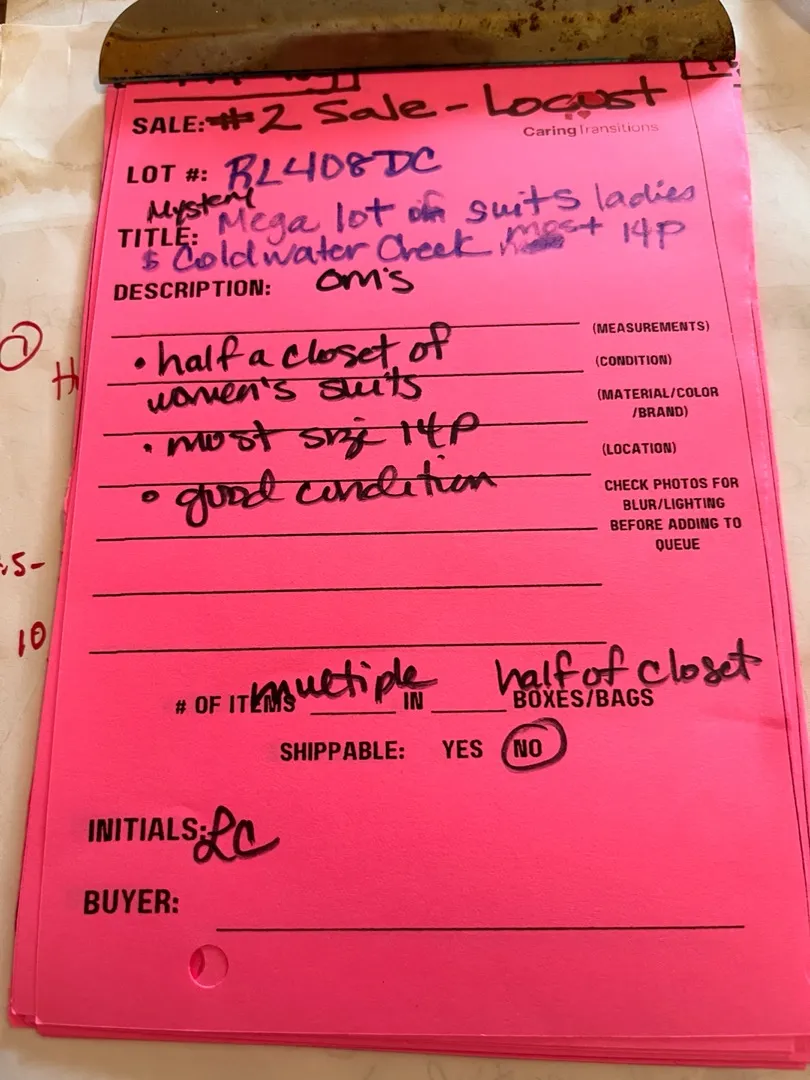 SALE: #2 Sale - Locust
CaringTransitions
LOT #: BL408DC
Mystery
TITLE: Mega lot of suits ladies
$ Coldwater Creek most 14P
DESCRIPTION: om's
(MEASUREMENTS)
• half a closet of
(CONDITION)
women's suits
(MATERIAL/COLOR
/BRAND)
• most size 14P
(LOCATION)
• good condition
CHECK PHOTOS FOR
BLUR/LIGHTING
BEFORE ADDING TO
QUEUE
# OF ITEMS multiple IN half of closet BOXES/BAGS
SHIPPABLE: YES NO
INITIALS: LC
BUYER:
1
H
5-
10